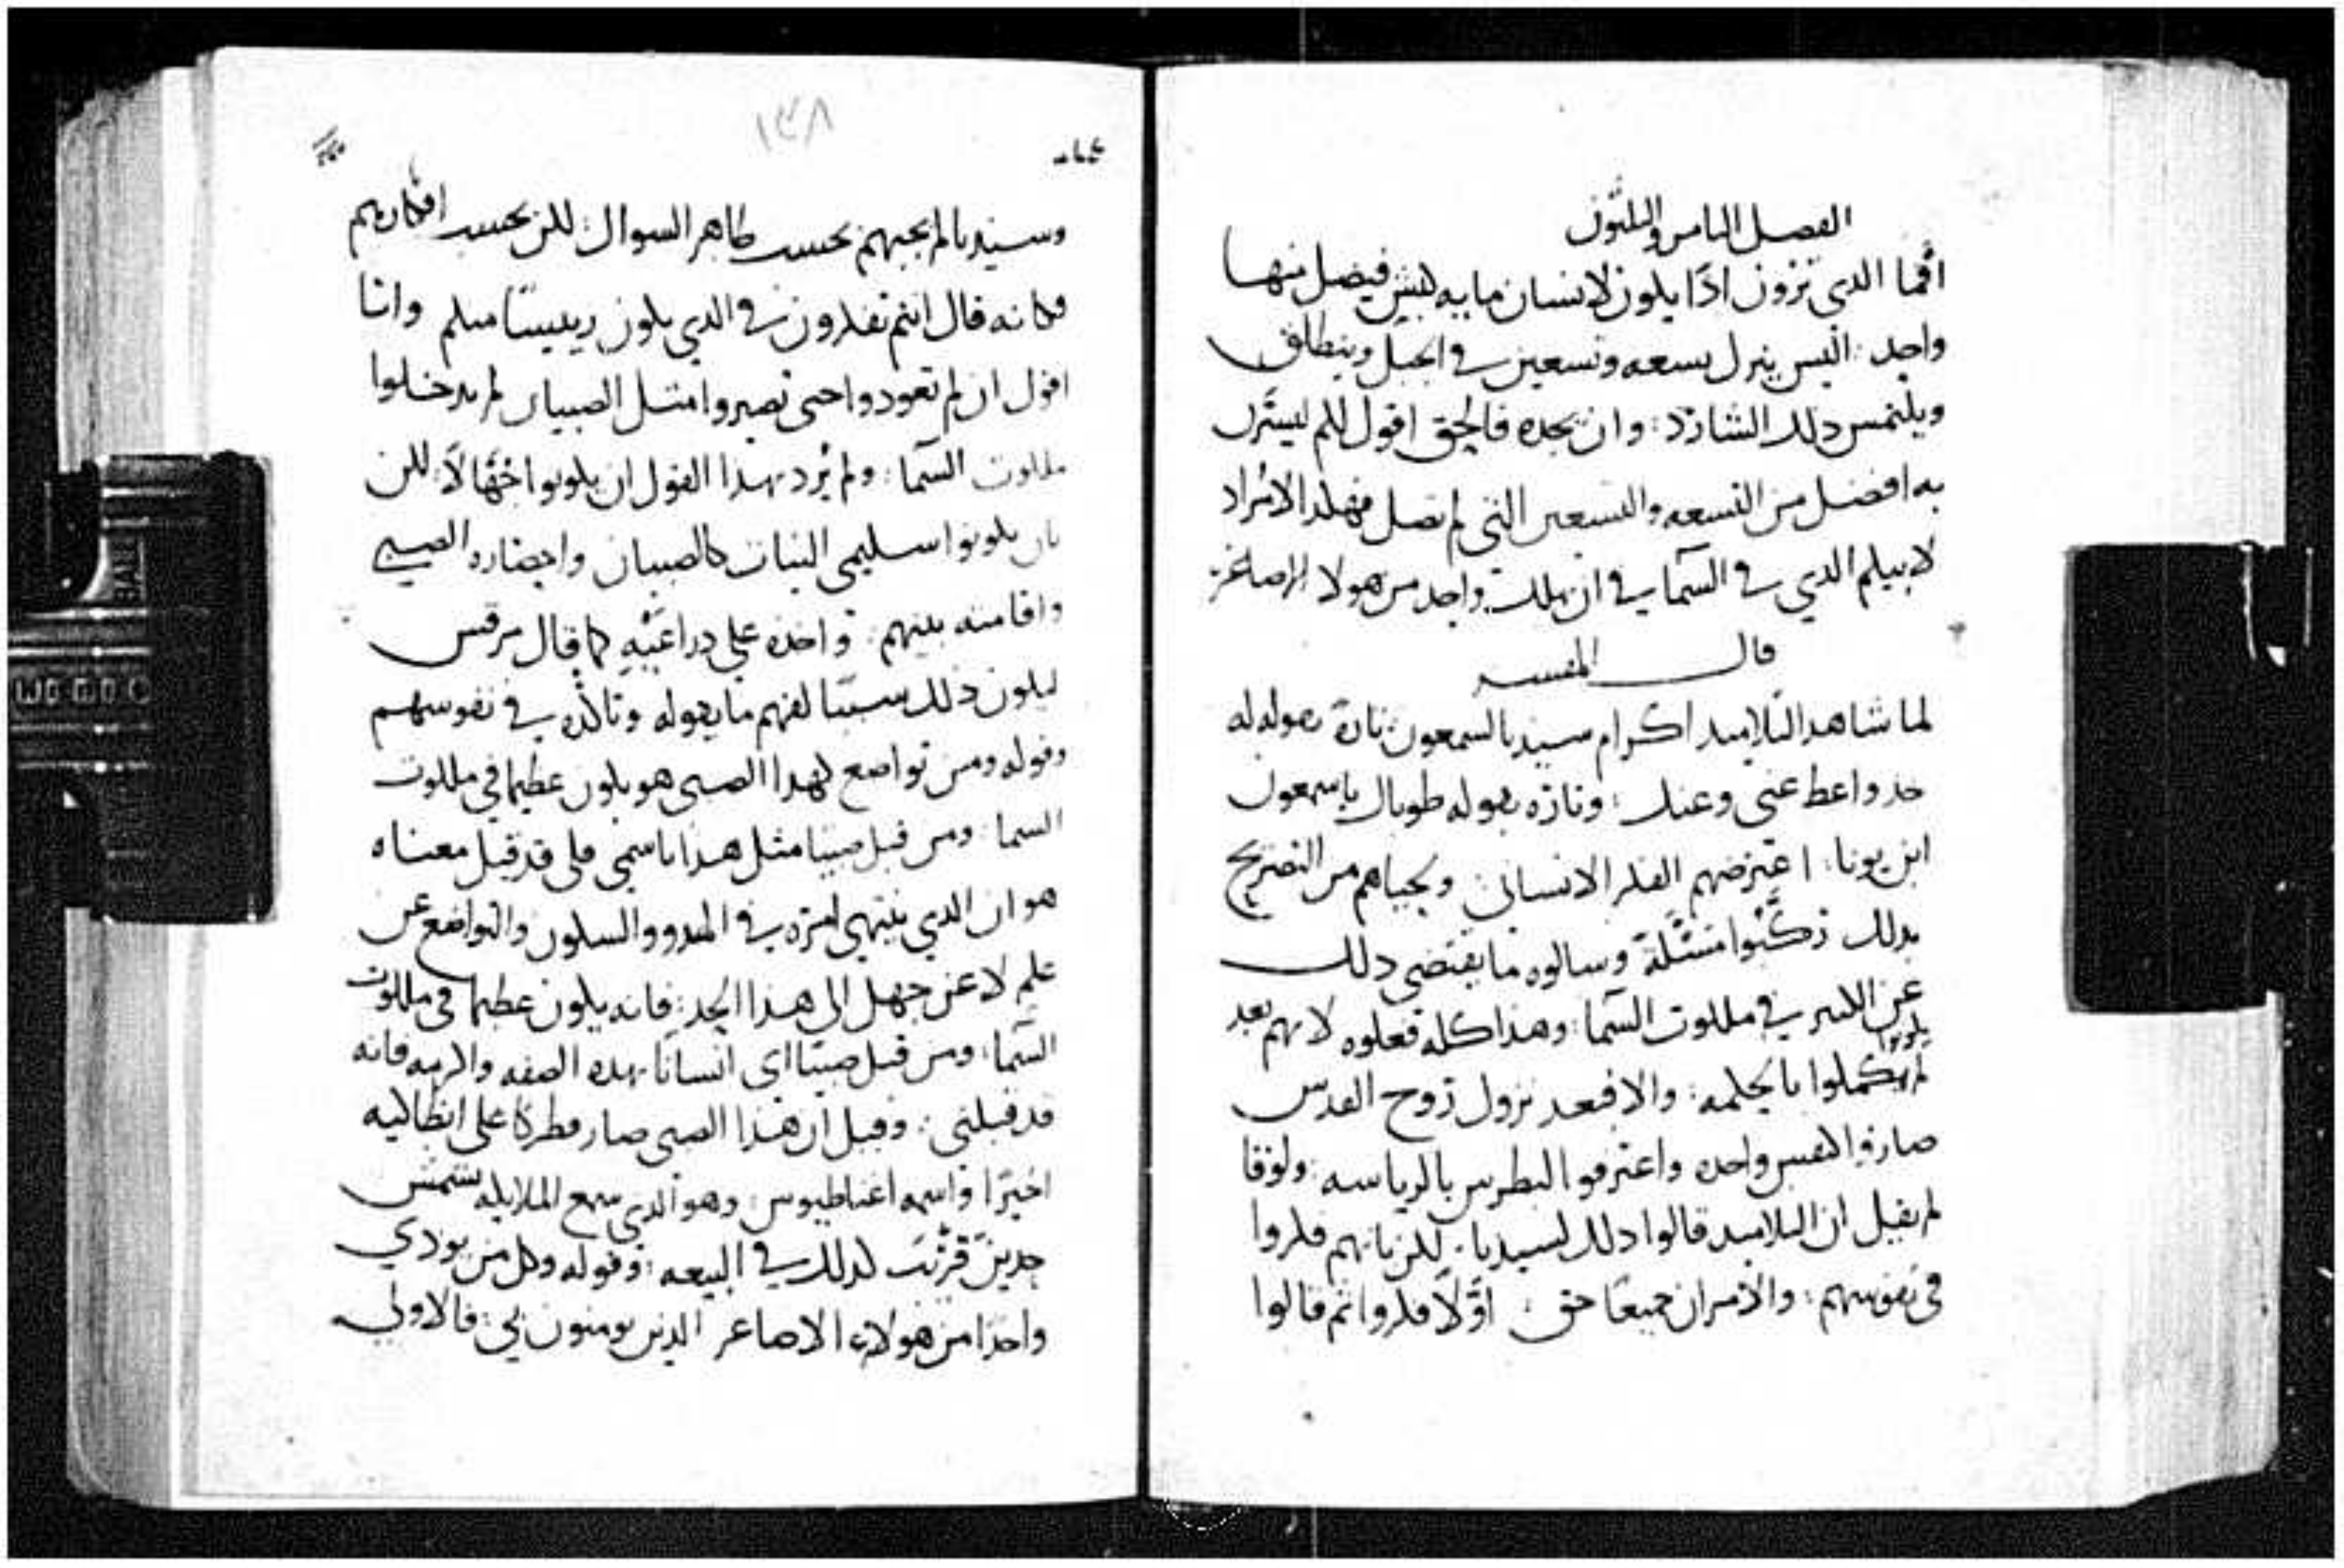 الفصل الثامن والثلثون
افما الذي ترون اذا يكون لانسان مايه كبش فيضل منها
واحد: اليس ينزل تسعه وتسعين في الجبل وينطلق
ويلتمس ذلك الشارد: وان يجده فالحق اقول لكم ليسترل
به افضل من التسعه والتسعين التي لم تضل فهكذا لا يراد
لابيكم الذي في السما في ان يهلك واحد من هولا الاصاغر
قال المفسر
لما شاهد التلاميد اكرام سيدنا لسمعون تارة بقوله له
خد واعط عني وعنك: وتارة بقوله طوباك ياسمعون
ابن يونا: اعترضهم الفكر الانساني: ولحياهم من التصريح
بدلك ركبوا مسئلة وسالوه ما يقتضي دلك
عن الكبير في ملكوت السما: وهذا كله فعلوه لانهم بعد
لم يكونوا كملوا بالحكمه: والا فبعد نزول روح القدس
صاروا كنفس واحده واعترفوا لبطرس بالرياسه: ولوقا
لم يقيل ان التلاميد قالوا دلك لسيدنا: لكن بانهم فكروا
في نفوسهم: والامران جميعا حق: اولا فكروا ثم قالوا
١٣٨
وسيدنا لم يجبهم بحسب ظاهر السوال: لكن بحسب افكارهم
فكانه قال انتم تفكرون في الدي يكون رييسا منكم وانا
اقول ان لم تعودوا حتى تصيروا مثل الصبيان لم تدخلوا
ملكوت السما: ولم يرد بهدا القول ان يكونوا جهالا: لكن
بان يكونوا سليمي النيات كالصبيان واحضاره الصبي
واقامته بينهم: واخذه على دراعيه كما قال مرقس
ليكون ذلك سببا لفهم ما يقوله وتاكده في نفوسهم
وقوله ومن تواضع كهدا الصبي هو يكون عظيما في ملكوت
السما: ومن قبل صبيا مثل هدا باسمي فلي قد قبل معناه
هو ان الدي ينتهي امره في الهدوو والسكون والتواضع عن
علم لا عن جهل الى هذا الحد: فانه يكون عظيما في ملكوت
السما: ومن قبل صبيا اي انسانا بهده الصفه فانه
قد قبلني: وقيل ان هذا الصبي صار مطركا على انطاكيه
اخيرا واسمه اغناطيوس: وهو الدي سمع الملايكه
في البيعه: وقوله وكل من يودي
واحدا من هولاء الاصاغر الدين يومنون بي: فالاولي